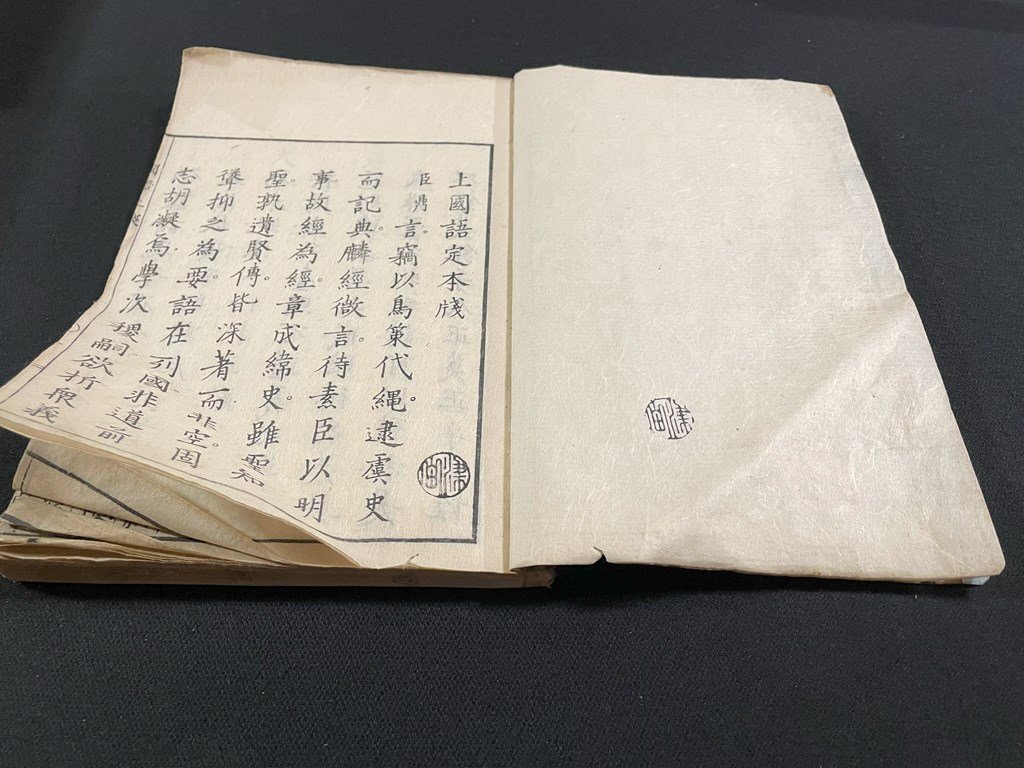 上國語定本牋
臣鼎言。竊以鳥策代繩。逮虞史
而記典。麟經微言。待素臣以明
事。故經為經。章成緯史。雖聖知
聖。孰遺賢傳。皆深著而非空。固
聳抑之為要。語在列國。非道前
志。胡凝焉學。次稷嗣欲折衷義